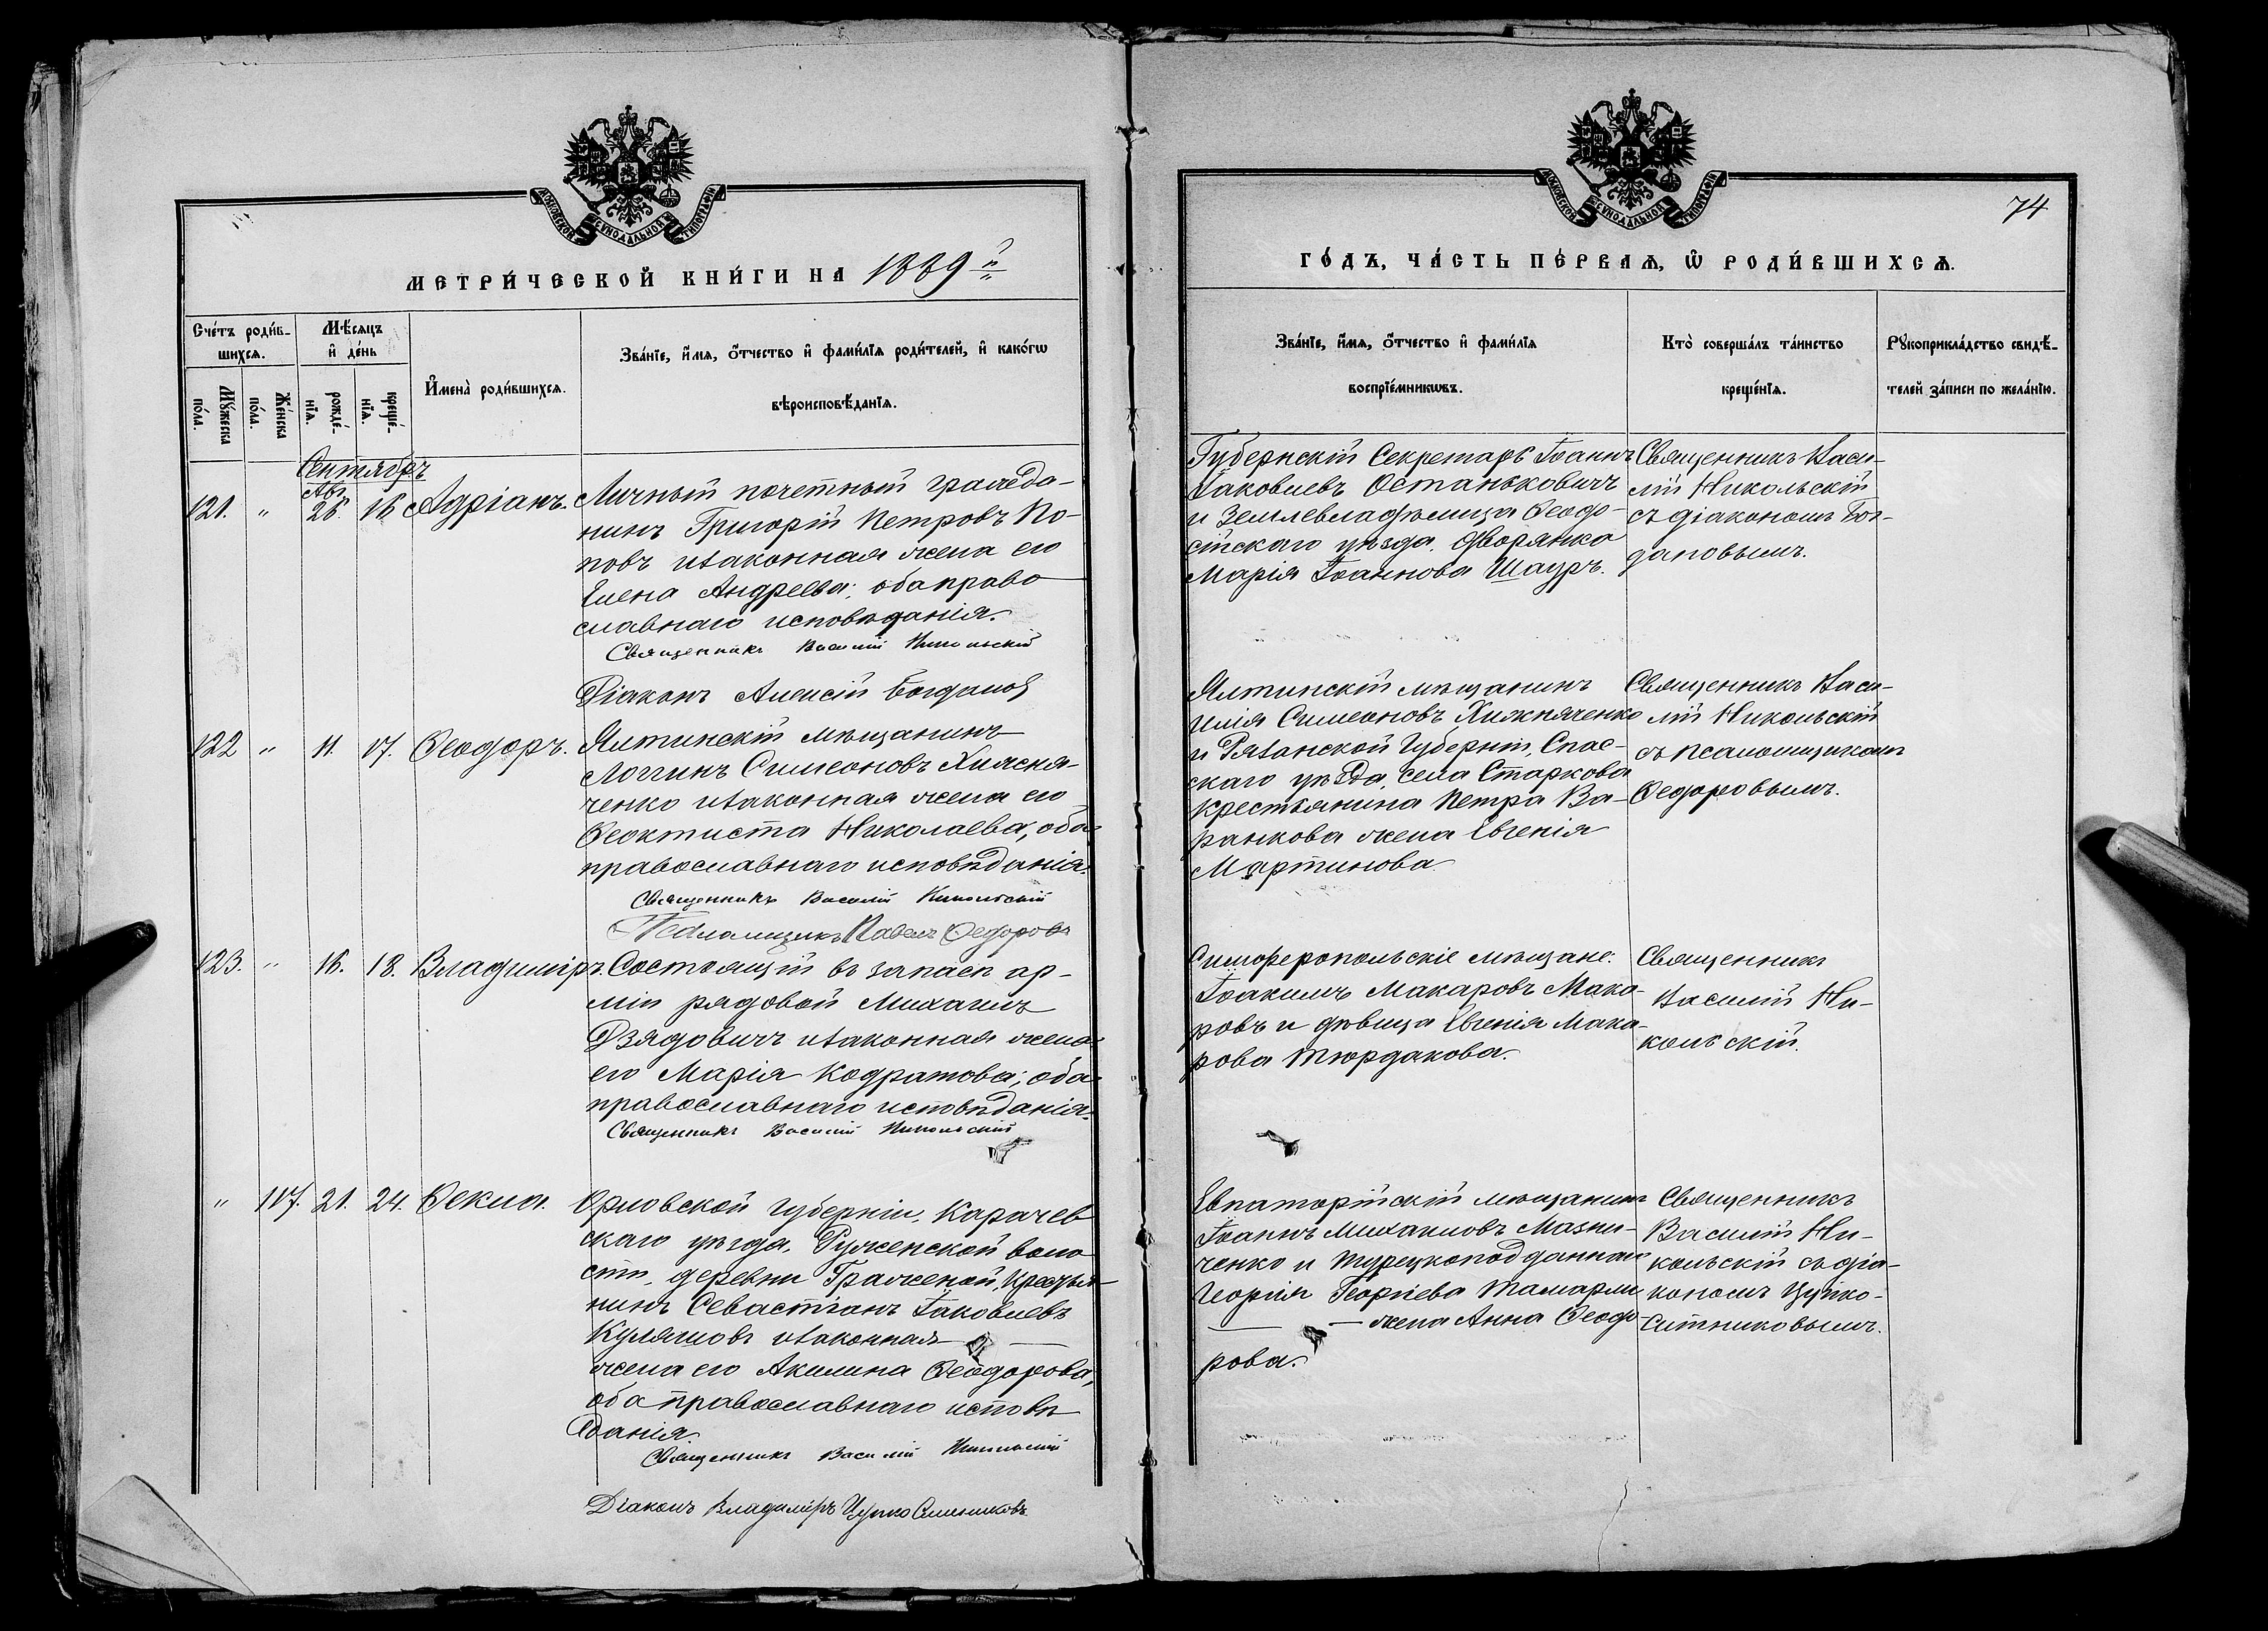 МОСКОВСКОЙ СѴНОДАЛЬНОЙ ТИПОГРАФІИ
МЕТРИ́ЧЕСКОЙ КНИ́ГИ НА 1889 й
Сче́тъ роди́в-
шихсѧ.
Мѣ́сѧцъ
и҆ де́нь
Мꙋ́жеска
по́ла.
Же́нска
по́ла.
рожде́-
нїѧ.
креще́-
нїѧ.
И҆мена̀ роди́вшихсѧ.
Зва́нїе, и҆́мѧ, ѻ҆́тчество и҆ фами́лїѧ роди́телей, и҆ како́гѡ
вѣроисповѣ́данїѧ.
Сентябрь
Авг.
121. " 26. 16 Адріанъ. Личный почетный гражда-
нинъ Григорій Петровъ По-
повъ и законная жена его
Елена Андреева; оба право
славнаго исповѣданія.
Священникъ Василій Никольскій
Діаконъ Алексій Богданов
122 " 11. 17. Ѳеодоръ. Ялтинскій мѣщанинъ
Логгинъ Симеоновъ Хижня-
ченко и законная жена его
Ѳеоктиста Николаева, оба
православнаго исповѣданія.
Священникъ Василій Никольскій
Псаломщикъ Павелъ Ѳедоровъ
123. " 16. 18. Владиміръ. Состоящій въ запасѣ ар-
міи рядовой Михаилъ
Дзядовичъ и законная жена
его Марія Кодратова; оба
православнаго исповѣданія.
Священникъ Василій Никольскій
" 117. 21. 24. Ѳекла. Орловской губерніи, Карачев
скаго уѣзда, Руженской воло
сти, деревни Граженой, крестья-
нинъ Севастіанъ Іаковлевъ
Куляшовъ и законная
жена его Акилина Ѳеодорова,
оба православнаго исповѣ
данія.
Священникъ Василій Никольскій
Діаконъ Владиміръ Цупко Ситниковъ
МОСКОВСКОЙ СѴНОДАЛЬНОЙ ТИПОГРАФІИ
74
ГО́ДЪ, ЧА́СТЬ ПЕ́РВАѦ, Ѡ҆ РОДИ́ВШИХСѦ.
Зва́нїе, и҆́мѧ, ѻ҆́тчество и҆ фами́лїѧ
воспрїе́мникѡвъ.
Кто̀ соверша́лъ та́инство
креще́нїѧ.
Рꙋкоприкла́дство свидѣ́-
телей за́писи по жела́нїю.
Губернскій Секретарь Іоаннъ
Іаковлевъ Останьковичъ
и землевладѣлица Ѳеодо-
сійскаго уѣзда, дворянка
Марія Іоаннова Шауръ.
Священникъ Васи-
лій Никольскій
съ діакономъ Бог-
дановымъ.
Ялтинскій мѣщанинъ
Илія Симеоновъ Хижняченко
и Рязанской Губерніи, Спас-
скаго уѣзда, села Старкова
крестьянина Петра Ба-
ранкова жена Евгенія
Мартинова.
Священникъ Васи-
лій Никольскій
съ псаломщикомъ
Ѳедоровымъ.
Симферопольскіе мѣщане:
Іоакимъ Макаровъ Мака-
ровъ и дѣвица Евгенія Мака-
рова Тюрдакова.
Священникъ
Василій Ни-
кольскій.
Евпаторійскій мѣщанинъ
Іоаннъ Михаиловъ Мазни-
ченко и турецкоподданнаго
Георгія Георгіева Тамарли
жена Анна Ѳеодо-
рова.
Священникъ
Василій Ни-
кольскій съ діа-
кономъ Цупко-
Ситниковымъ.